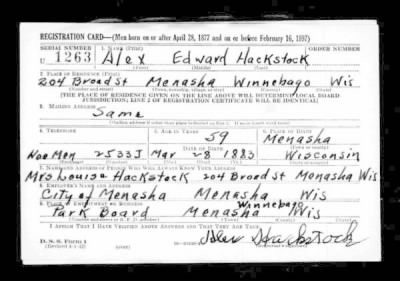 REGISTRATION CARD—(Men born on or after April 28, 1877 and on or before February 16, 1897)
SERIAL NUMBER 1. NAME (Print) ORDER NUMBER
1263 Alex Edward Hackstock
2. PLACE OF RESIDENCE (Print)
204 Broad St Menasha Winnebago Wis
[THE PLACE OF RESIDENCE GIVEN ON THE LINE ABOVE WILL DETERMINE LOCAL BOARD
JURISDICTION; LINE 2 OF REGISTRATION CERTIFICATE WILL BE IDENTICAL]
3. MAILING ADDRESS
Same
4. TELEPHONE 5. AGE IN YEARS 6. PLACE OF BIRTH
59 Menasha
DATE OF BIRTH
2533J Mar 28 1883 Wisconsin
7. NAME AND ADDRESS OF PERSON WHO WILL ALWAYS KNOW YOUR ADDRESS
Mrs Louisa Hackstock 204 Broad St Menasha Wis
8. EMPLOYER'S NAME AND ADDRESS
City of Menasha Menasha Wis
9. PLACE OF EMPLOYMENT OR BUSINESS
Winnebago
Park Board Menasha Wis
I AFFIRM THAT I HAVE VERIFIED ABOVE ANSWERS AND THAT THEY ARE TRUE.
D. S. S. Form 1
(Revised 4-1-42)
Alex Hackstock